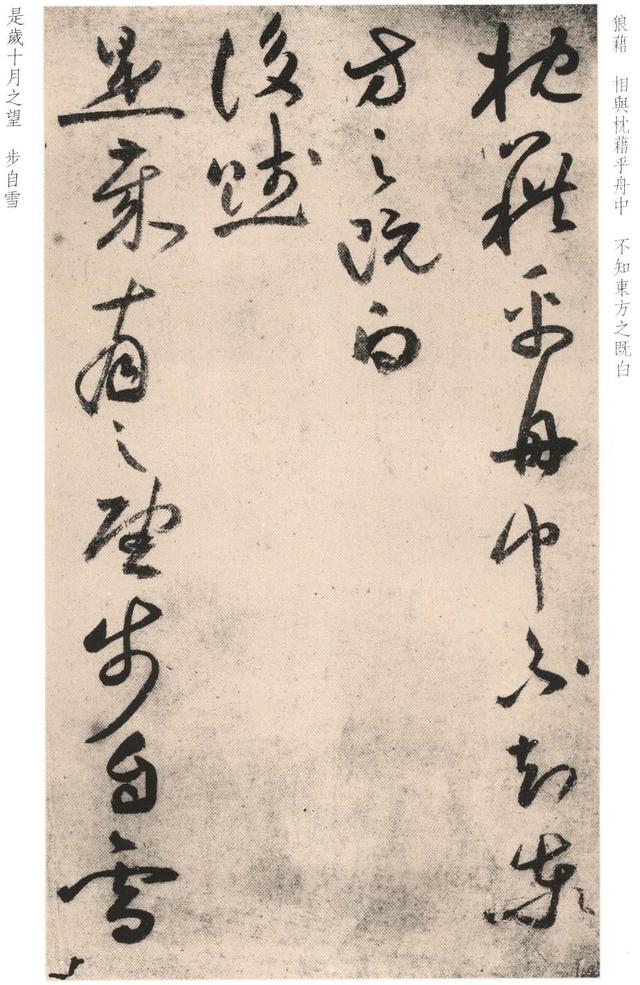 狼藉 相與枕藉乎舟中 不知東方之既白
枕藉乎舟中不知東
方之既白
後賦
是歲十月之望步自雪
是歲十月之望 步自雪